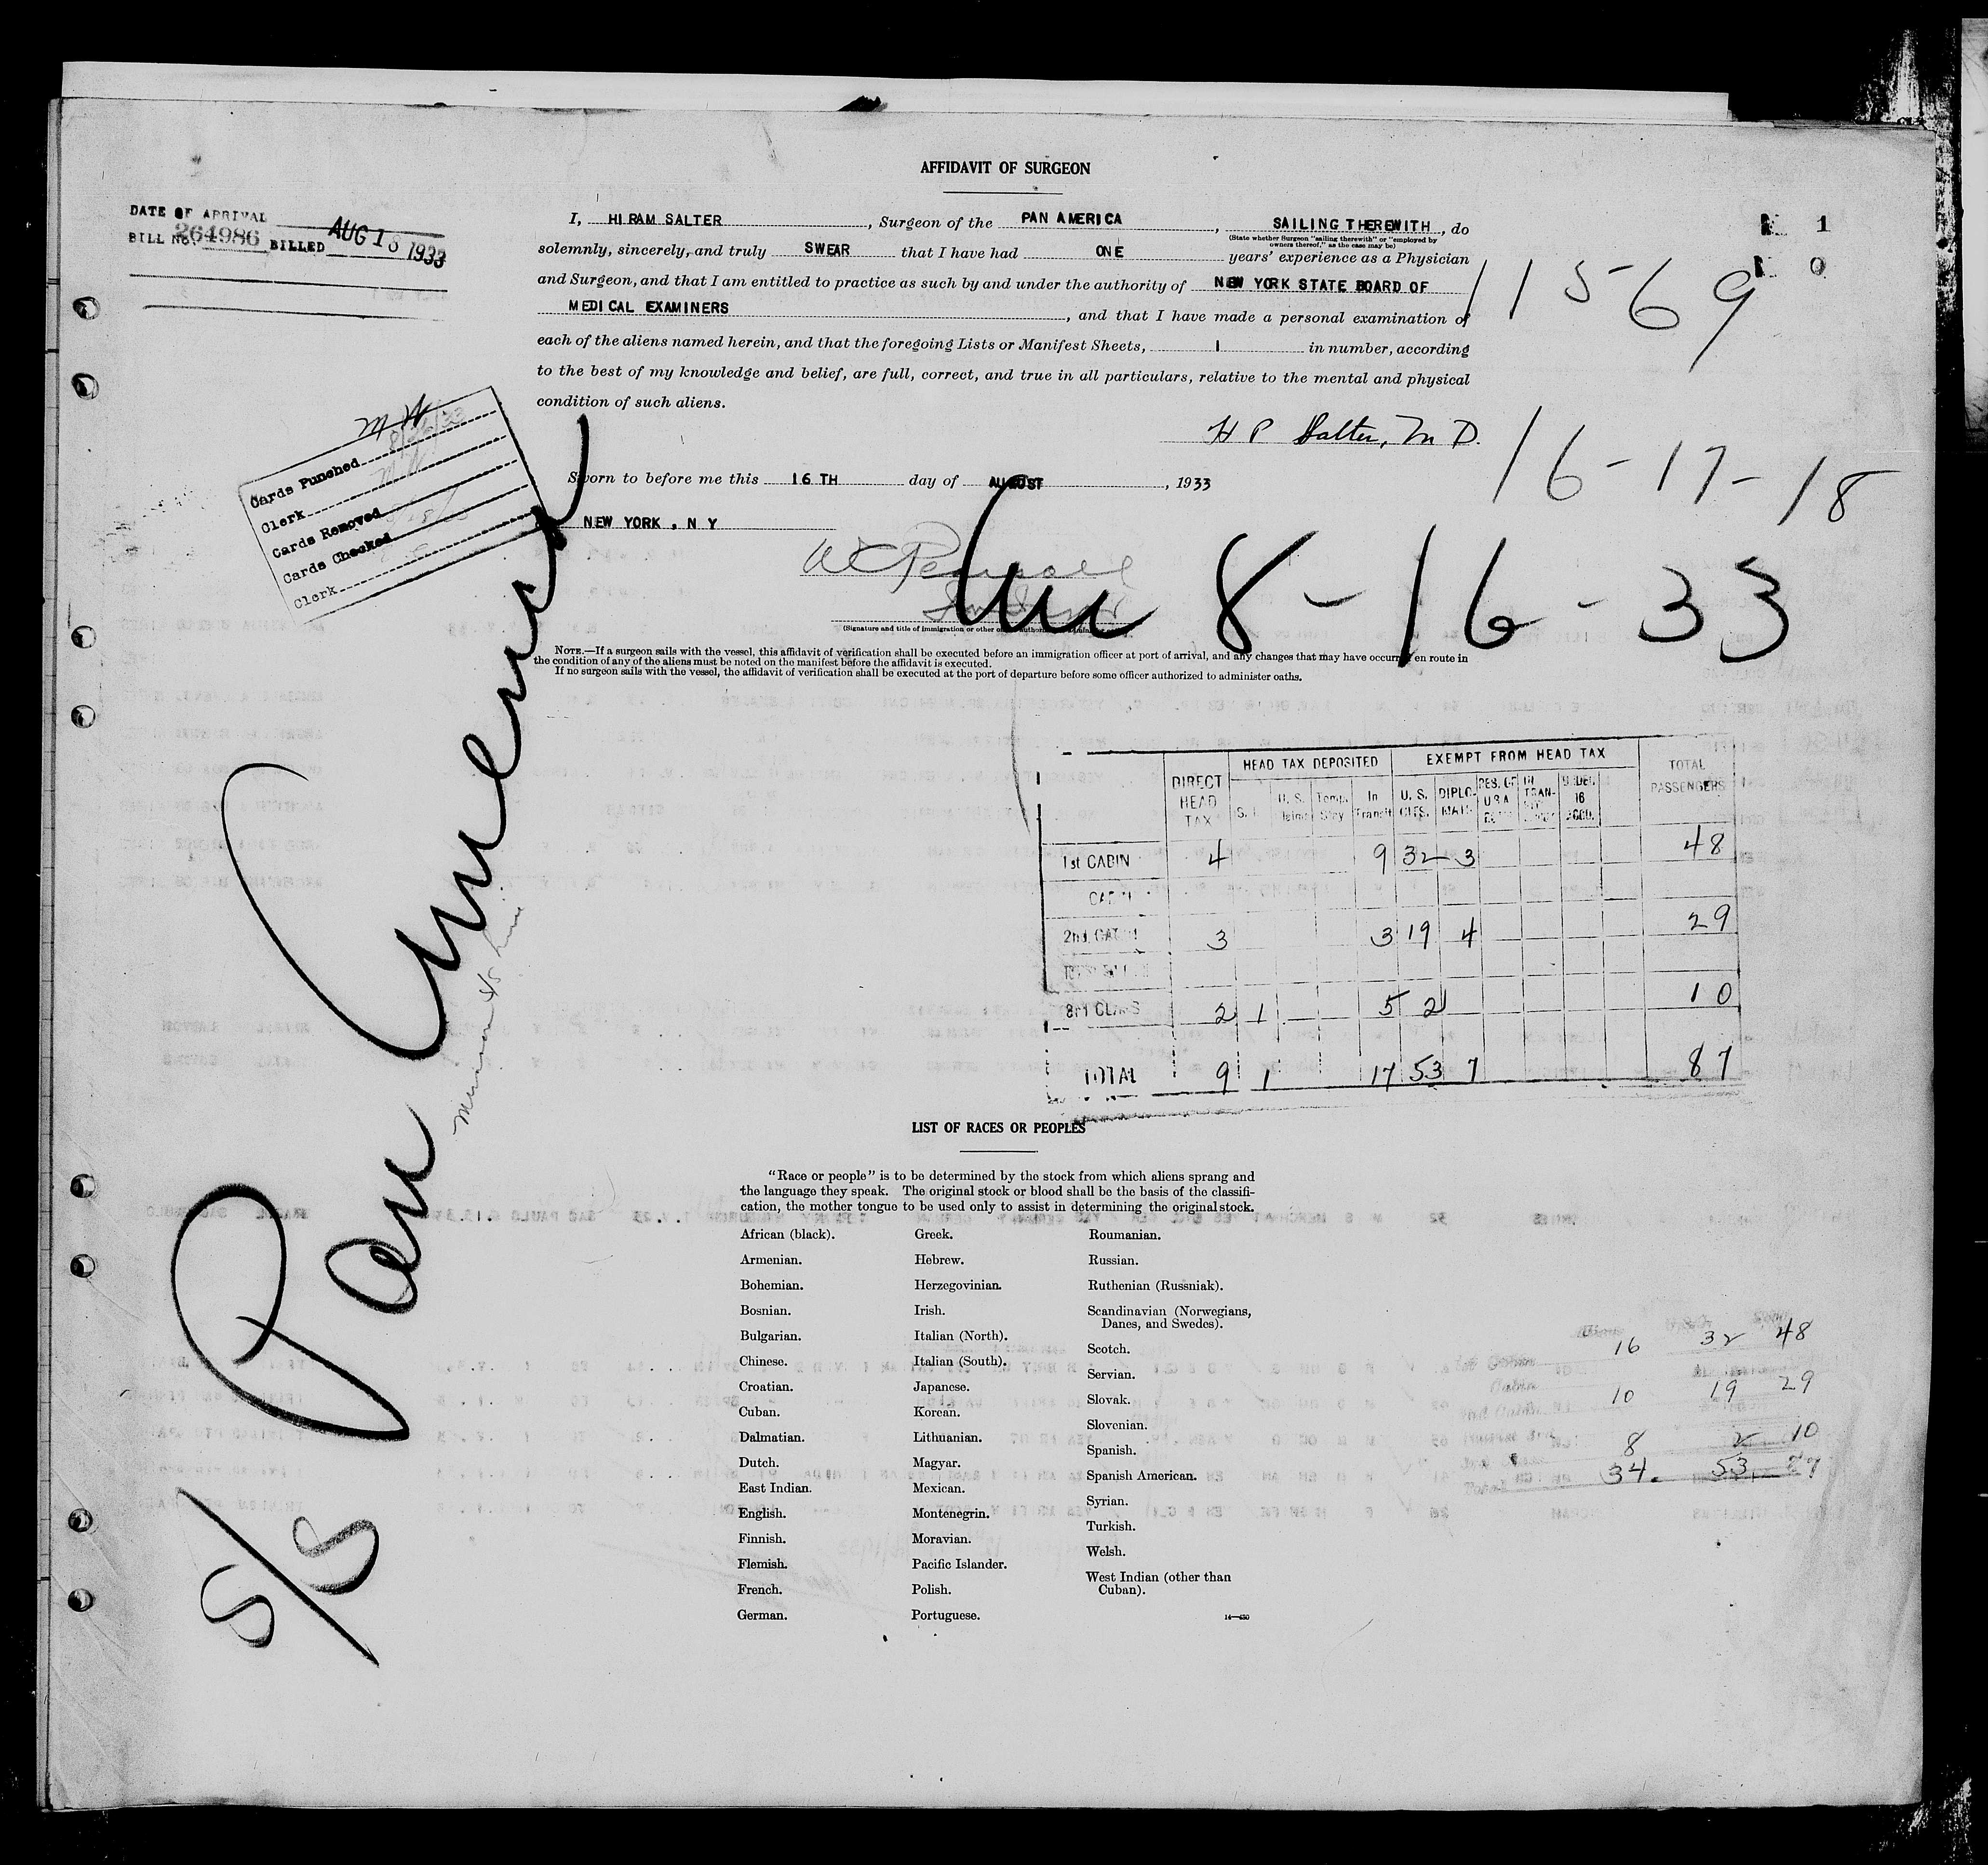 AFFIDAVIT OF SURGEON
DATE OF ARRIVAL
BILL No. 264986 BILLED AUG 16 1933
I, HIRAM SALTER, Surgeon of the PAN AMERICA, SAILING THEREWITH, do
(State whether Surgeon "sailing therewith" or "employed by
owners thereof," as the case may be)
solemnly, sincerely, and truly SWEAR that I have had ONE years' experience as a Physician
and Surgeon, and that I am entitled to practice as such by and under the authority of NEW YORK STATE BOARD OF
MEDICAL EXAMINERS, and that I have made a personal examination of
each of the aliens named herein, and that the foregoing Lists or Manifest Sheets, 1 in number, according
to the best of my knowledge and belief, are full, correct, and true in all particulars, relative to the mental and physical
condition of such aliens.
1
0
11569
H P Salter, M D.
16-17-18
Sworn to before me this 16 TH day of AUGUST, 1933
NEW YORK, N Y
8-16-33
(Signature and title of immigration or other
NOTE.—If a surgeon sails with the vessel, this affidavit of verification shall be executed before an immigration officer at port of arrival, and any changes that may have occurred en route in
the condition of any of the aliens must be noted on the manifest before the affidavit is executed.
If no surgeon sails with the vessel, the affidavit of verification shall be executed at the port of departure before some officer authorized to administer oaths.
Cards Punched
Clerk
Cards Removed
Cards Checked
Clerk
S/S Pan America
DIRECT HEAD TAX HEAD TAX DEPOSITED EXEMPT FROM HEAD TAX TOTAL PASSENGERS
S.I. U.S. Temp. Stay In Transit U.S. CITS. DIPLOMATS RES. OF USA IN TRANSIT UNDER 16 ACCO.
1st CABIN 4 9 32 3 48
CABIN
2nd CABIN 3 3 19 4 29
3rd CLASS 2 1 5 2 10
TOTAL 9 1 17 53 7 87
LIST OF RACES OR PEOPLES
"Race or people" is to be determined by the stock from which aliens sprang and
the language they speak. The original stock or blood shall be the basis of the classifi-
cation, the mother tongue to be used only to assist in determining the original stock.
African (black).
Armenian.
Bohemian.
Bosnian.
Bulgarian.
Chinese.
Croatian.
Cuban.
Dalmatian.
Dutch.
East Indian.
English.
Finnish.
Flemish.
French.
German.
Greek.
Hebrew.
Herzegovinian.
Irish.
Italian (North).
Italian (South).
Japanese.
Korean.
Lithuanian.
Magyar.
Mexican.
Montenegrin.
Moravian.
Pacific Islander.
Polish.
Portuguese.
Roumanian.
Russian.
Ruthenian (Russniak).
Scandinavian (Norwegians,
Danes, and Swedes).
Scotch.
Servian.
Slovak.
Slovenian.
Spanish.
Spanish American.
Syrian.
Turkish.
Welsh.
West Indian (other than
Cuban).
14—430
16 32 48
Cabin
10 19 29
8 2 10
Total 34. 53 87